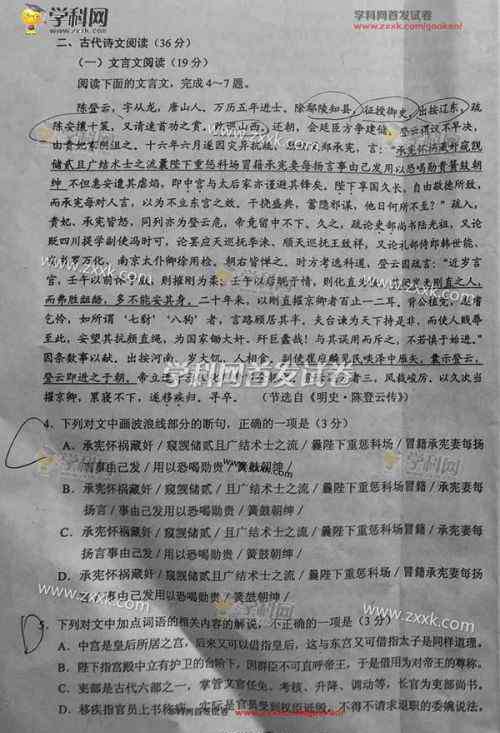 学科网
www.zxxk.com
学科网首发试卷
www.zxxk.com/gaokao/
二、古代诗文阅读（36分）
（一）文言文阅读（19分）
阅读下面的文言文，完成4～7题。
陈登云，字从龙，唐山人。万历五年进士。除鄢陵知县，征授御史。出按辽东，疏
陈安攘十策，又请速首功之赏。改巡山西。还朝，会廷臣方争建储。登云谓议不早决，
由贵妃家阻之。十六年六月遂因灾异抗疏，郑承宪，言：“承宪怀祸藏奸窥觊
储贰且广结术士之流曩陛下重惩科场冒籍承宪妻每扬言事由己发用以恐喝勋贵簧鼓朝
绅。不但惠安遭其虐焰，即中宫与太后家亦谨避其锋矣。陛下享国久长，自由敬德所致，
而承宪每对人言，以为不立东宫之效。干挠盛典，蓄隐邪谋，他日何所不至？”疏入，
贵妃、承宪皆怒，同列亦为登云危，帝竟留中不下。久之，疏论吏部尚书陆光祖，又论
贬四川提学副使冯时可，论罢应天巡抚李涞、顺天巡抚王致祥，又论礼部侍郎韩世能、
尚书罗万化、南京太仆卿徐用检。朝右皆惮之。时方考选科道，登云因疏言：“近岁言
官，壬午以前怵于威，则摧刚为柔；壬午以后昵于情，则化直为佞。其间岂无刚直之人，
而弗胜龃龉，多不能安其身。二十年来，以刚直擢京卿者百止一二耳。背公植党，逐嗜
乞怜，如所谓‘七豺’‘八狗’者，言路顾居其半。夫台谏为天下持是非，而使人贱辱
至此，安望其抗颜直绳，为国家锄大奸、歼巨蠹哉！与其误用而斥之，不若慎于始进。”
因条数事以献。出按河南。岁大饥，人相食。副使崔应麟见民啖泽中雁矢，囊示登云，
登云即进之于朝。帝立遣者三，风裁峻厉。以久次当
擢京卿，累寝不下，遂移疾归。寻卒。（节选自《明史·陈登云传》）
学科网首发试卷
4．下列对文中画波浪线部分的断句，正确的一项是（3分）
A．承宪怀祸藏奸/窥觊储贰/且广结术士之流/曩陛下重惩科场冒籍/承宪妻每扬
言事由己发/用以恐喝勋贵/簧鼓朝绅/
B．承宪怀祸藏奸/窥觊储贰/且广结术士之流/曩陛下重惩科场/冒籍承宪妻每扬
言/事由己发/用以恐喝勋贵/簧鼓朝绅/
C．承宪怀祸藏奸/窥觊储贰/且广结术士之流/曩陛下重惩科场冒籍/承宪妻每
扬言事由己发/用以恐喝勋贵/簧鼓朝绅/
D．承宪怀祸藏奸/窥觊储贰/且广结术士之流/曩陛下重惩科场/冒籍承宪妻每
5．下列对文中加点词语的相关内容的解说，不正确的一项是（3分）
A．中宫是皇后所居之宫，后来又可以借指皇后，这与东宫又可借指太子是同样道理。
B．陛下指宫殿中立有护卫的台阶下，因群臣不可直呼帝王，于是借用为对帝王的尊称。
C．吏部是古代六部之一，掌管文官任免、考核、升降、调动等，长官为吏部尚书。
D．移疾指官员上书称病，实际是官员受到权臣诋毁，不得不请求退职的委婉说法。
学科网首发试卷 www.zxxk.com/gaoken/